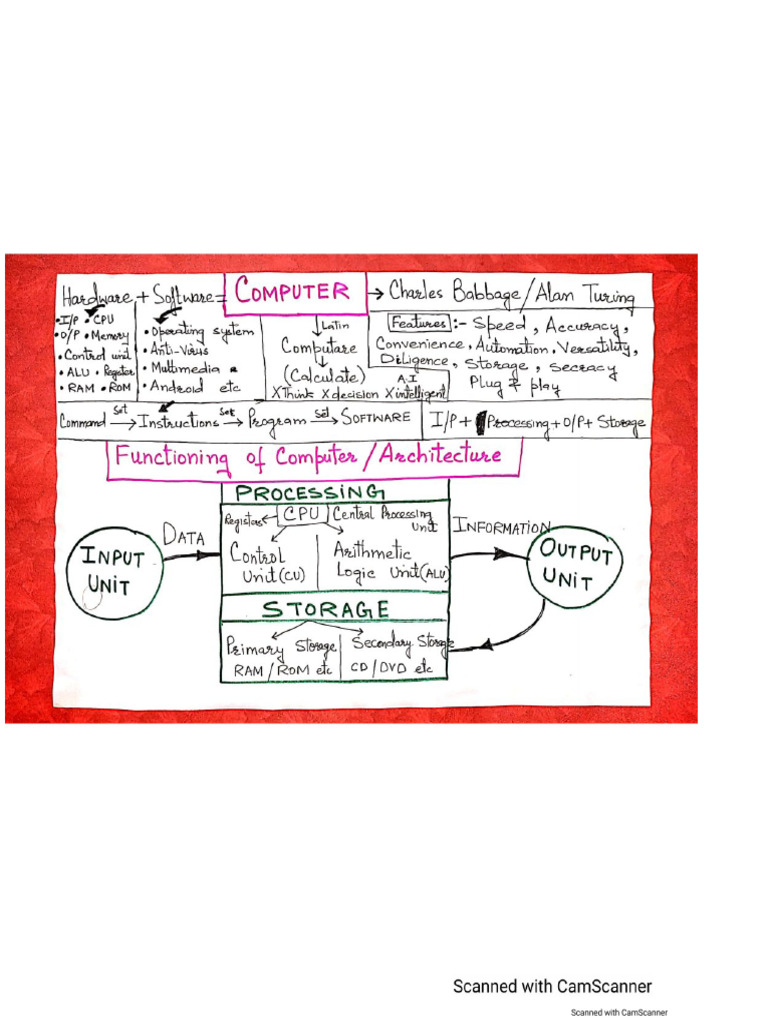 Hardware + Software = COMPUTER → Charles Babbage/Alan Turing
• I/P • CPU
• O/P • Memory
• Control unit
• ALU • Register
• RAM • ROM
• Operating system
• Anti-Virus
• Multimedia
• Android etc
Latin
Computare
(Calculate)
A.I
XThink Xdecision Xintelligent
Features :- Speed, Accuracy,
Convenience, Automation, Versatility,
DiLigence, storage, secracy
Plug & play
Command set → Instructions set → Program set → SOFTWARE
I/P + Processing + O/P + Storage
Functioning of Computer/Architecture
PROCESSING
Registers ← CPU Central Processing
Unit
Control
Unit (CU)
Arithmetic
Logic Unit (ALU)
DATA
INFORMATION
INPUT
UNIT
OUTPUT
UNIT
STORAGE
Primary Storage
RAM/ROM etc
Secondary Storage
CD/DVD etc
Scanned with CamScanner
Scanned with CamScanner